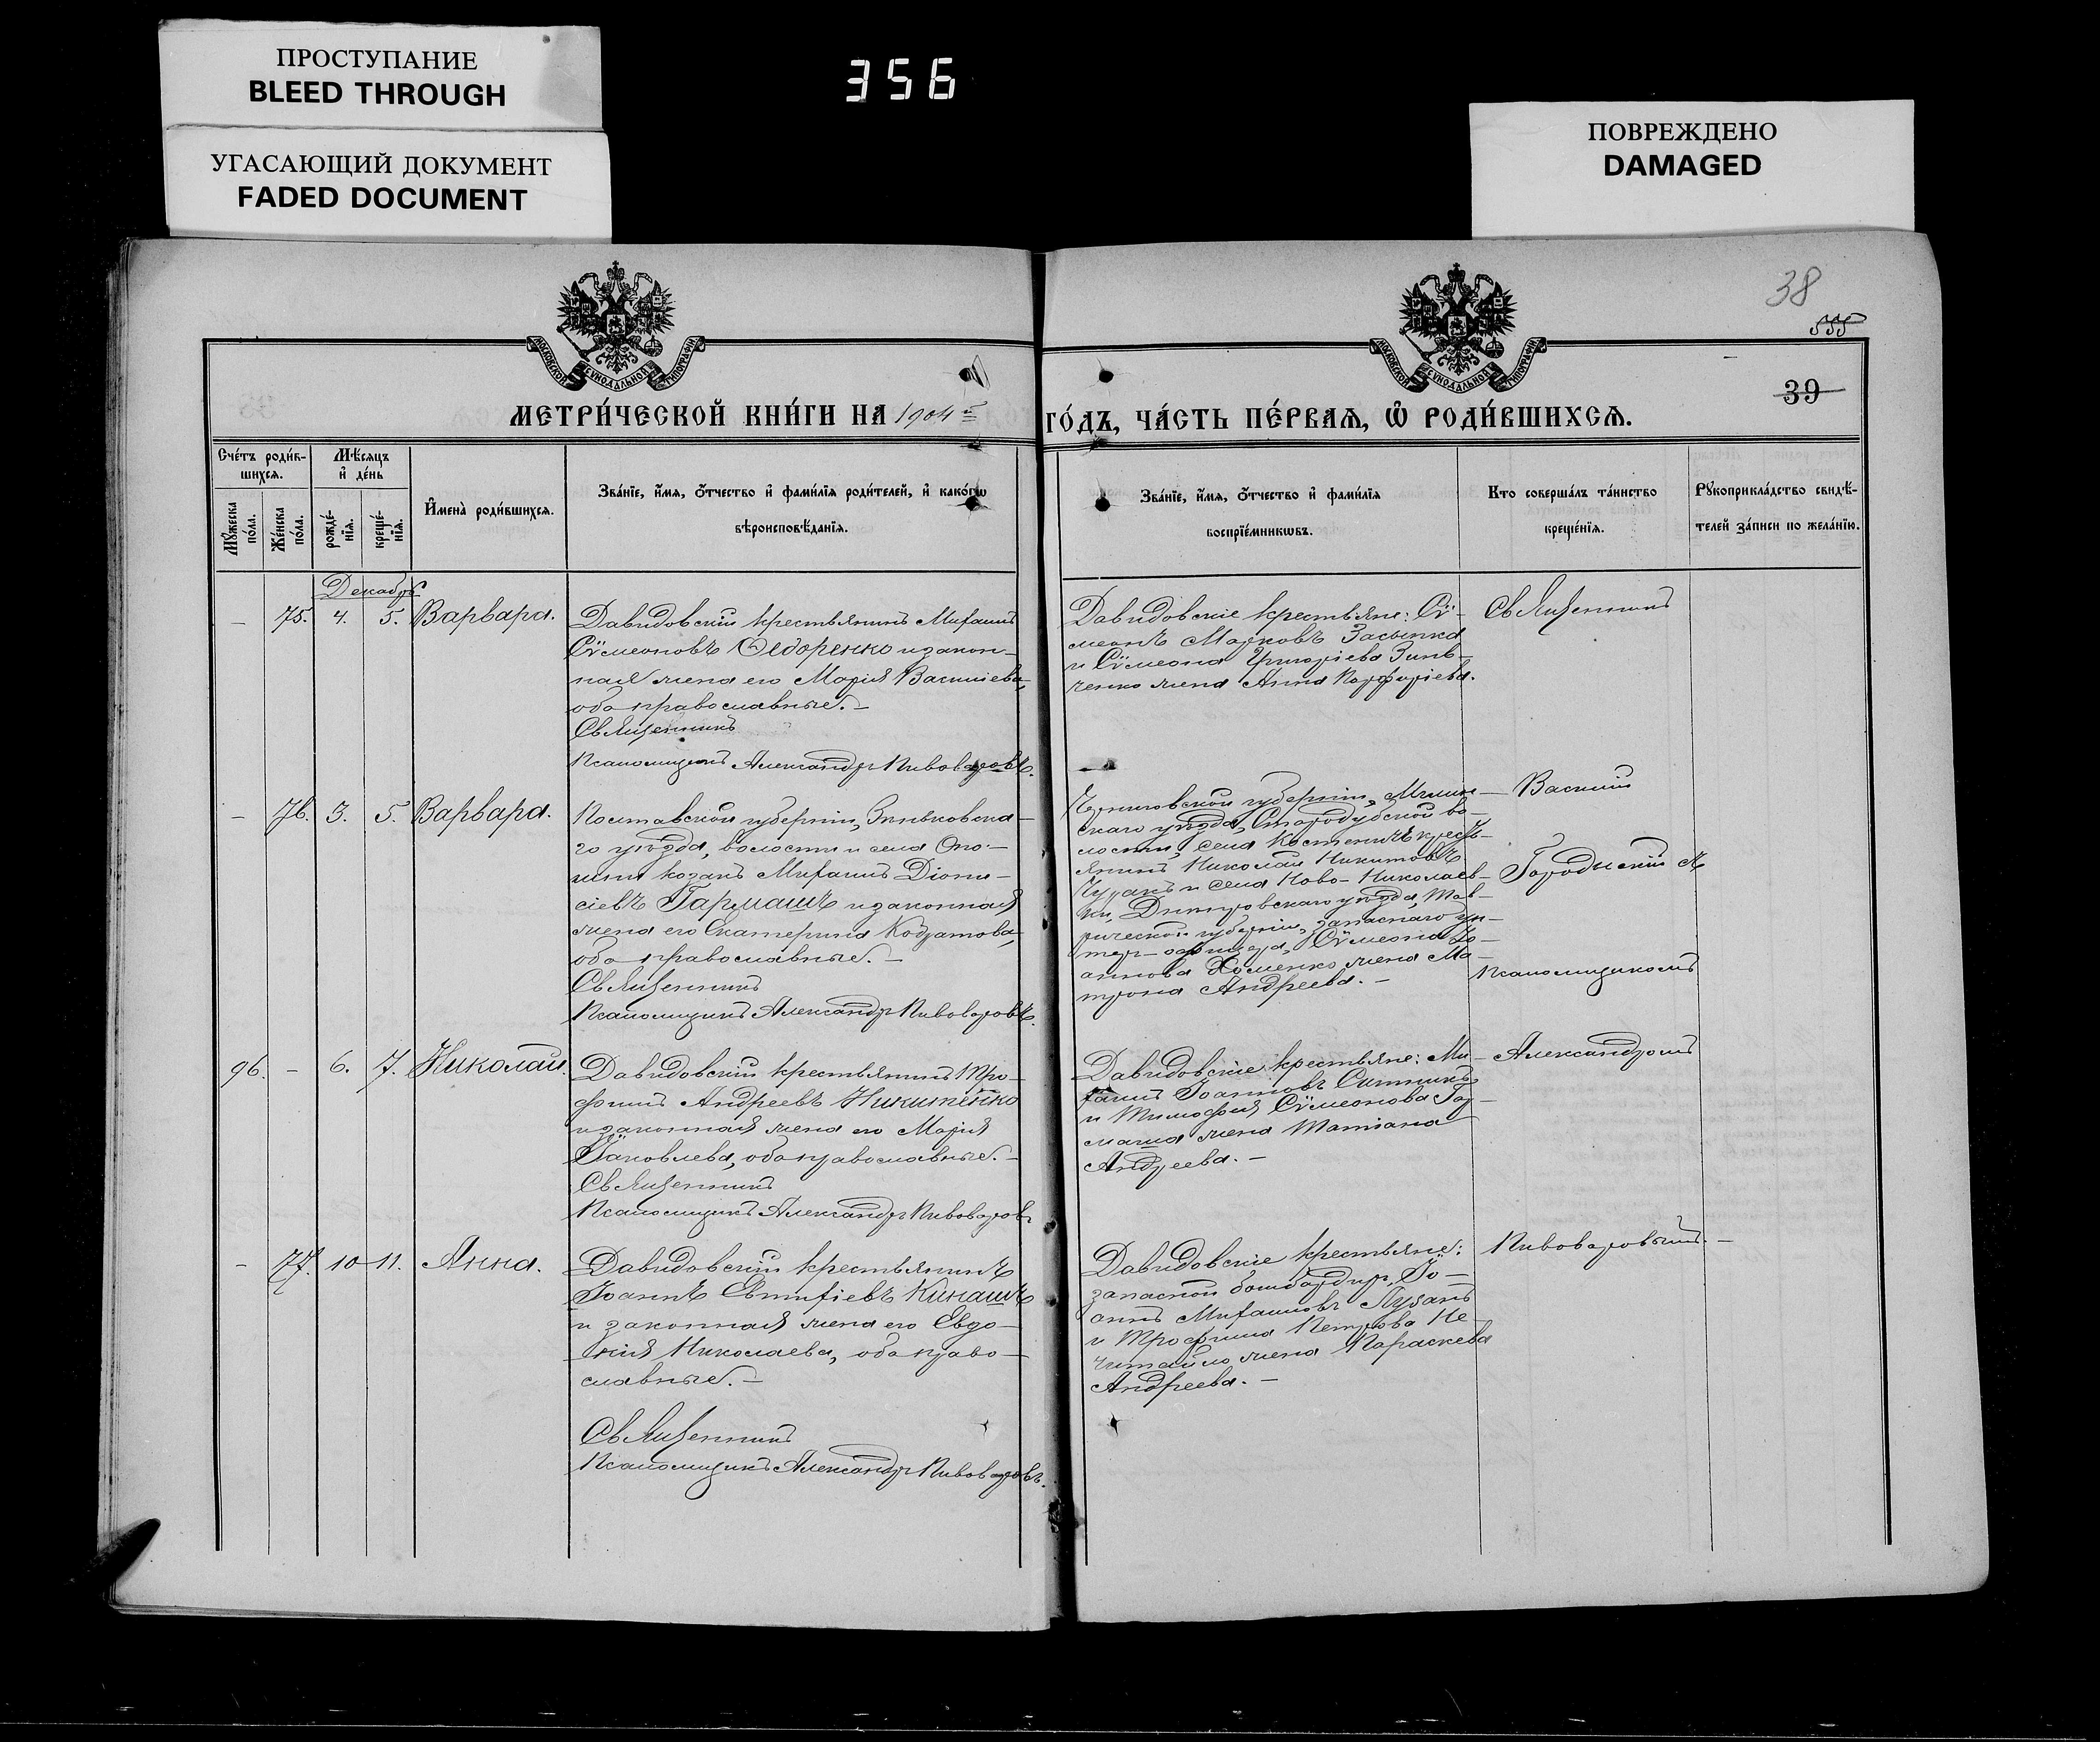 ПРОСТУПАНИЕ
BLEED THROUGH
УГАСАЮЩИЙ ДОКУМЕНТ
FADED DOCUMENT
356
ПОВРЕЖДЕНО
DAMAGED
38
555
39
МОСКОВСКОЙ СѴНОДАЛЬНОЙ ТИПОГРАФІИ
МОСКОВСКОЙ СѴНОДАЛЬНОЙ ТИПОГРАФІИ
МЕТРИ́ЧЕСКОЙ КНИ́ГИ НА 1904 й
ГО́ДЪ, ЧА́СТЬ ПЕ́РВАЯ, Ѡ҆ РОДИ́ВШИХСЯ.
Сче́тъ роди́в-
шихся.
Мѣ́сяцъ
и҆ де́нь
Мꙋ́жеска
по́ла.
Же́нска
по́ла.
рожде́-
нїя.
креще́-
нїя.
И҆мена̀ роди́вшихся.
Зва́нїе, и҆́мя, ѻ҆́тчество и҆ фами́лїя роди́телей, и҆ како́гѡ
вѣроисповѣ́данїя.
Зва́нїе, и҆́мя, ѻ҆́тчество и҆ фами́лїя
воспрїе́мникѡвъ.
Кто соверша́лъ та́инство
креще́нїя.
Рꙋкоприкла́дство свидѣ́-
телей за́писи по жела́нїю.
Декабрь
– 75. 4. 5. Варвара.
Давидовскій крестьянинъ Михаилъ
Сѵмеоновъ Ѳедоренко и закон-
ная жена его Марія Василіева,
оба православные.–
Священникъ
Псаломщикъ Александръ Пивоваровъ.
Давидовскіе крестьяне: Сѵ-
меонъ Марковъ Засыпка
и Сѵмеона Григоріева Зинь-
ченко жена Анна Порфиріева.
Священникъ
– 76. 3. 5. Варвара.
Полтавской губерніи, Зиньковска-
го уѣзда, волости и села Опо-
шни козакъ Михаилъ Діони-
сіевъ Гармашъ и законная
жена его Екатерина Кодратова,
оба православные.–
Священникъ
Псаломщикъ Александръ Пивоваровъ.
Черниговской губерніи, Мглин-
скаго уѣзда, Стародубской во-
лости, села Костеничъ кресть-
янинъ Николай Никитовъ
и села Ново-Николаев-
ки, Днепровскаго уѣзда, Тав-
рической губерніи, запаснаго ун-
тер-офицера, Сѵмеона Іо-
аннова Хоменко жена Ма-
трона Андреева.–
Василій
Городыскій съ
Псаломщикомъ
96. – 6. 7. Николай.
Давидовскій крестьянинъ Тро-
фимъ Андреевъ Никитенко
и законная жена его Марія
Іаковлева, оба православные.–
Священникъ
Псаломщикъ Александръ Пивоваровъ
Давидовскіе крестьяне: Ми-
хаилъ Іоанновъ Ситникъ
и Тимофея Сѵмеонова Гар-
маша жена Татіана
Андреева.–
Александромъ
– 77. 10 11. Анна.
Давидовскій крестьянинъ
Іоаннъ Евтихіевъ Кинашъ
и законная жена его Евдо-
кія Николаева, оба право-
славные.–
Священникъ
Псаломщикъ Александръ Пивоваровъ.
Давидовскіе крестьяне:
запасной бомбардиръ, Іо-
аннъ Михаиловъ Лузанъ
и Трофима Петрова Не-
читайло жена Параскева
Андреева.–
Пивоваровымъ.–